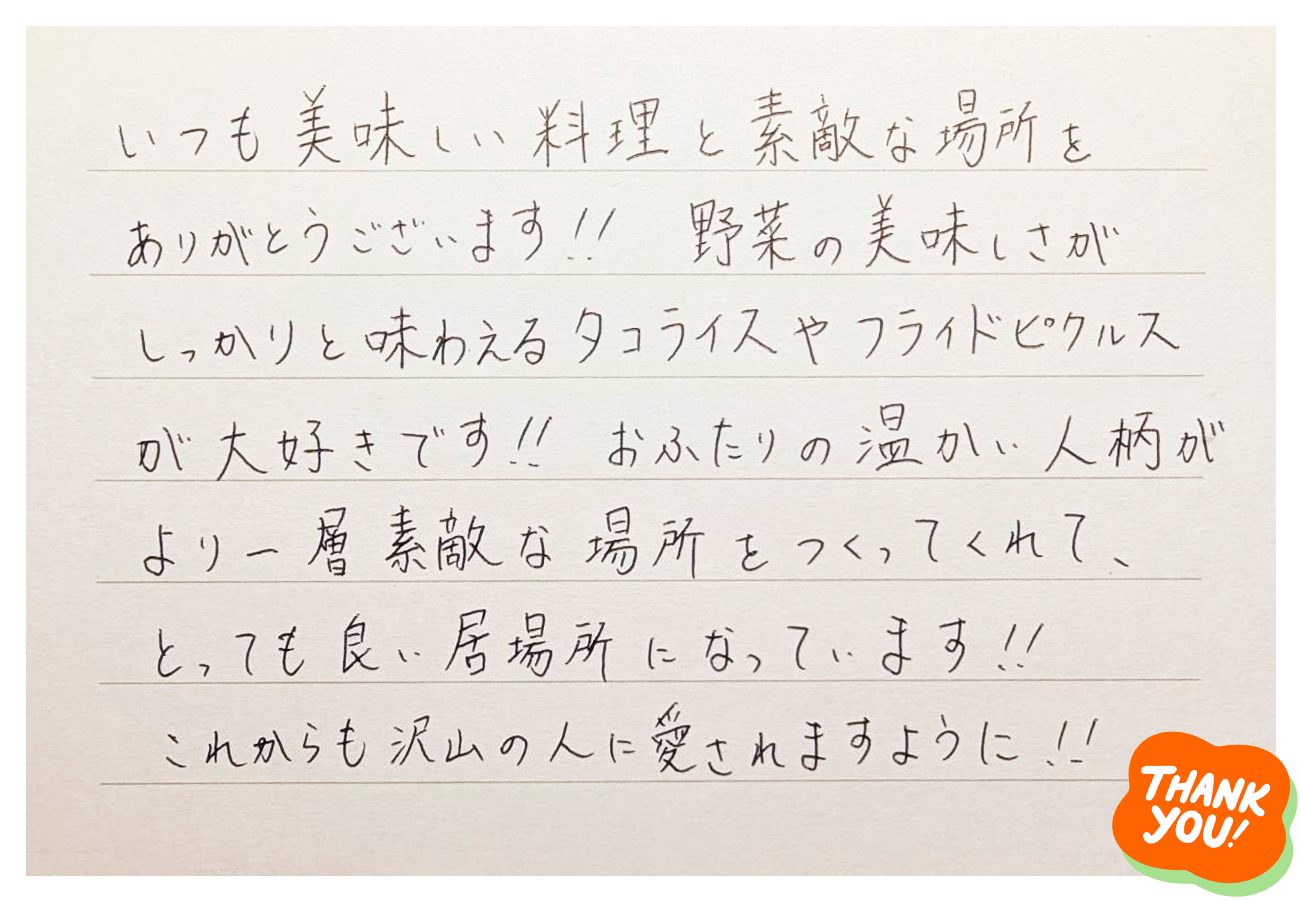 いつも美味しい料理と素敵な場所を
ありがとうございます!! 野菜の美味しさが
しっかりと味わえるタコライスやフライドピクルス
が大好きです!! おふたりの温かい人柄が
より一層素敵な場所をつくってくれて、
とっても良い居場所になっています!!
これからも沢山の人に愛されますように!!
THANK
YOU!